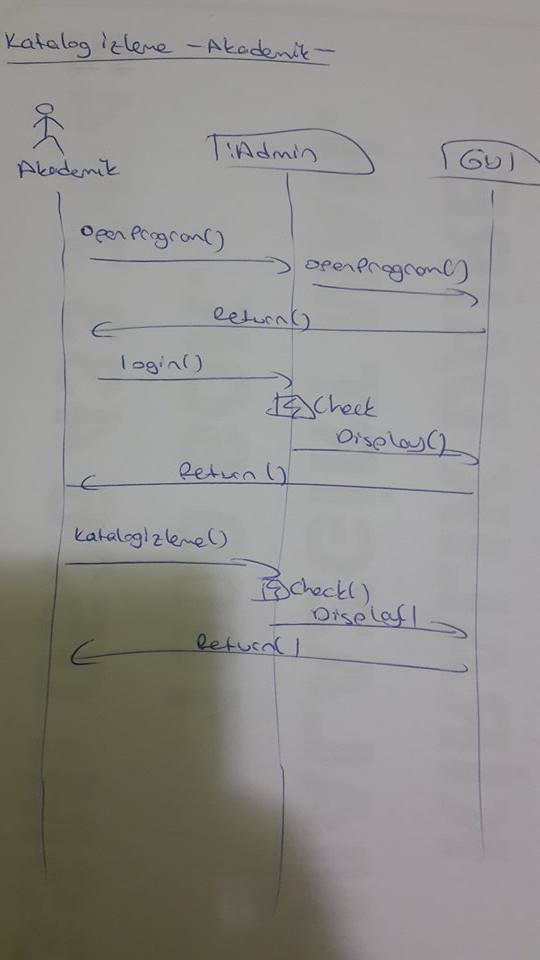 Katalog izleme -Akademik-
Akademik
T:Admin
GUI
OpenProgram()
OpenProgram()
Return()
login()
Check
Display()
Return()
KatalogIzleme()
Check()
Display()
Return()